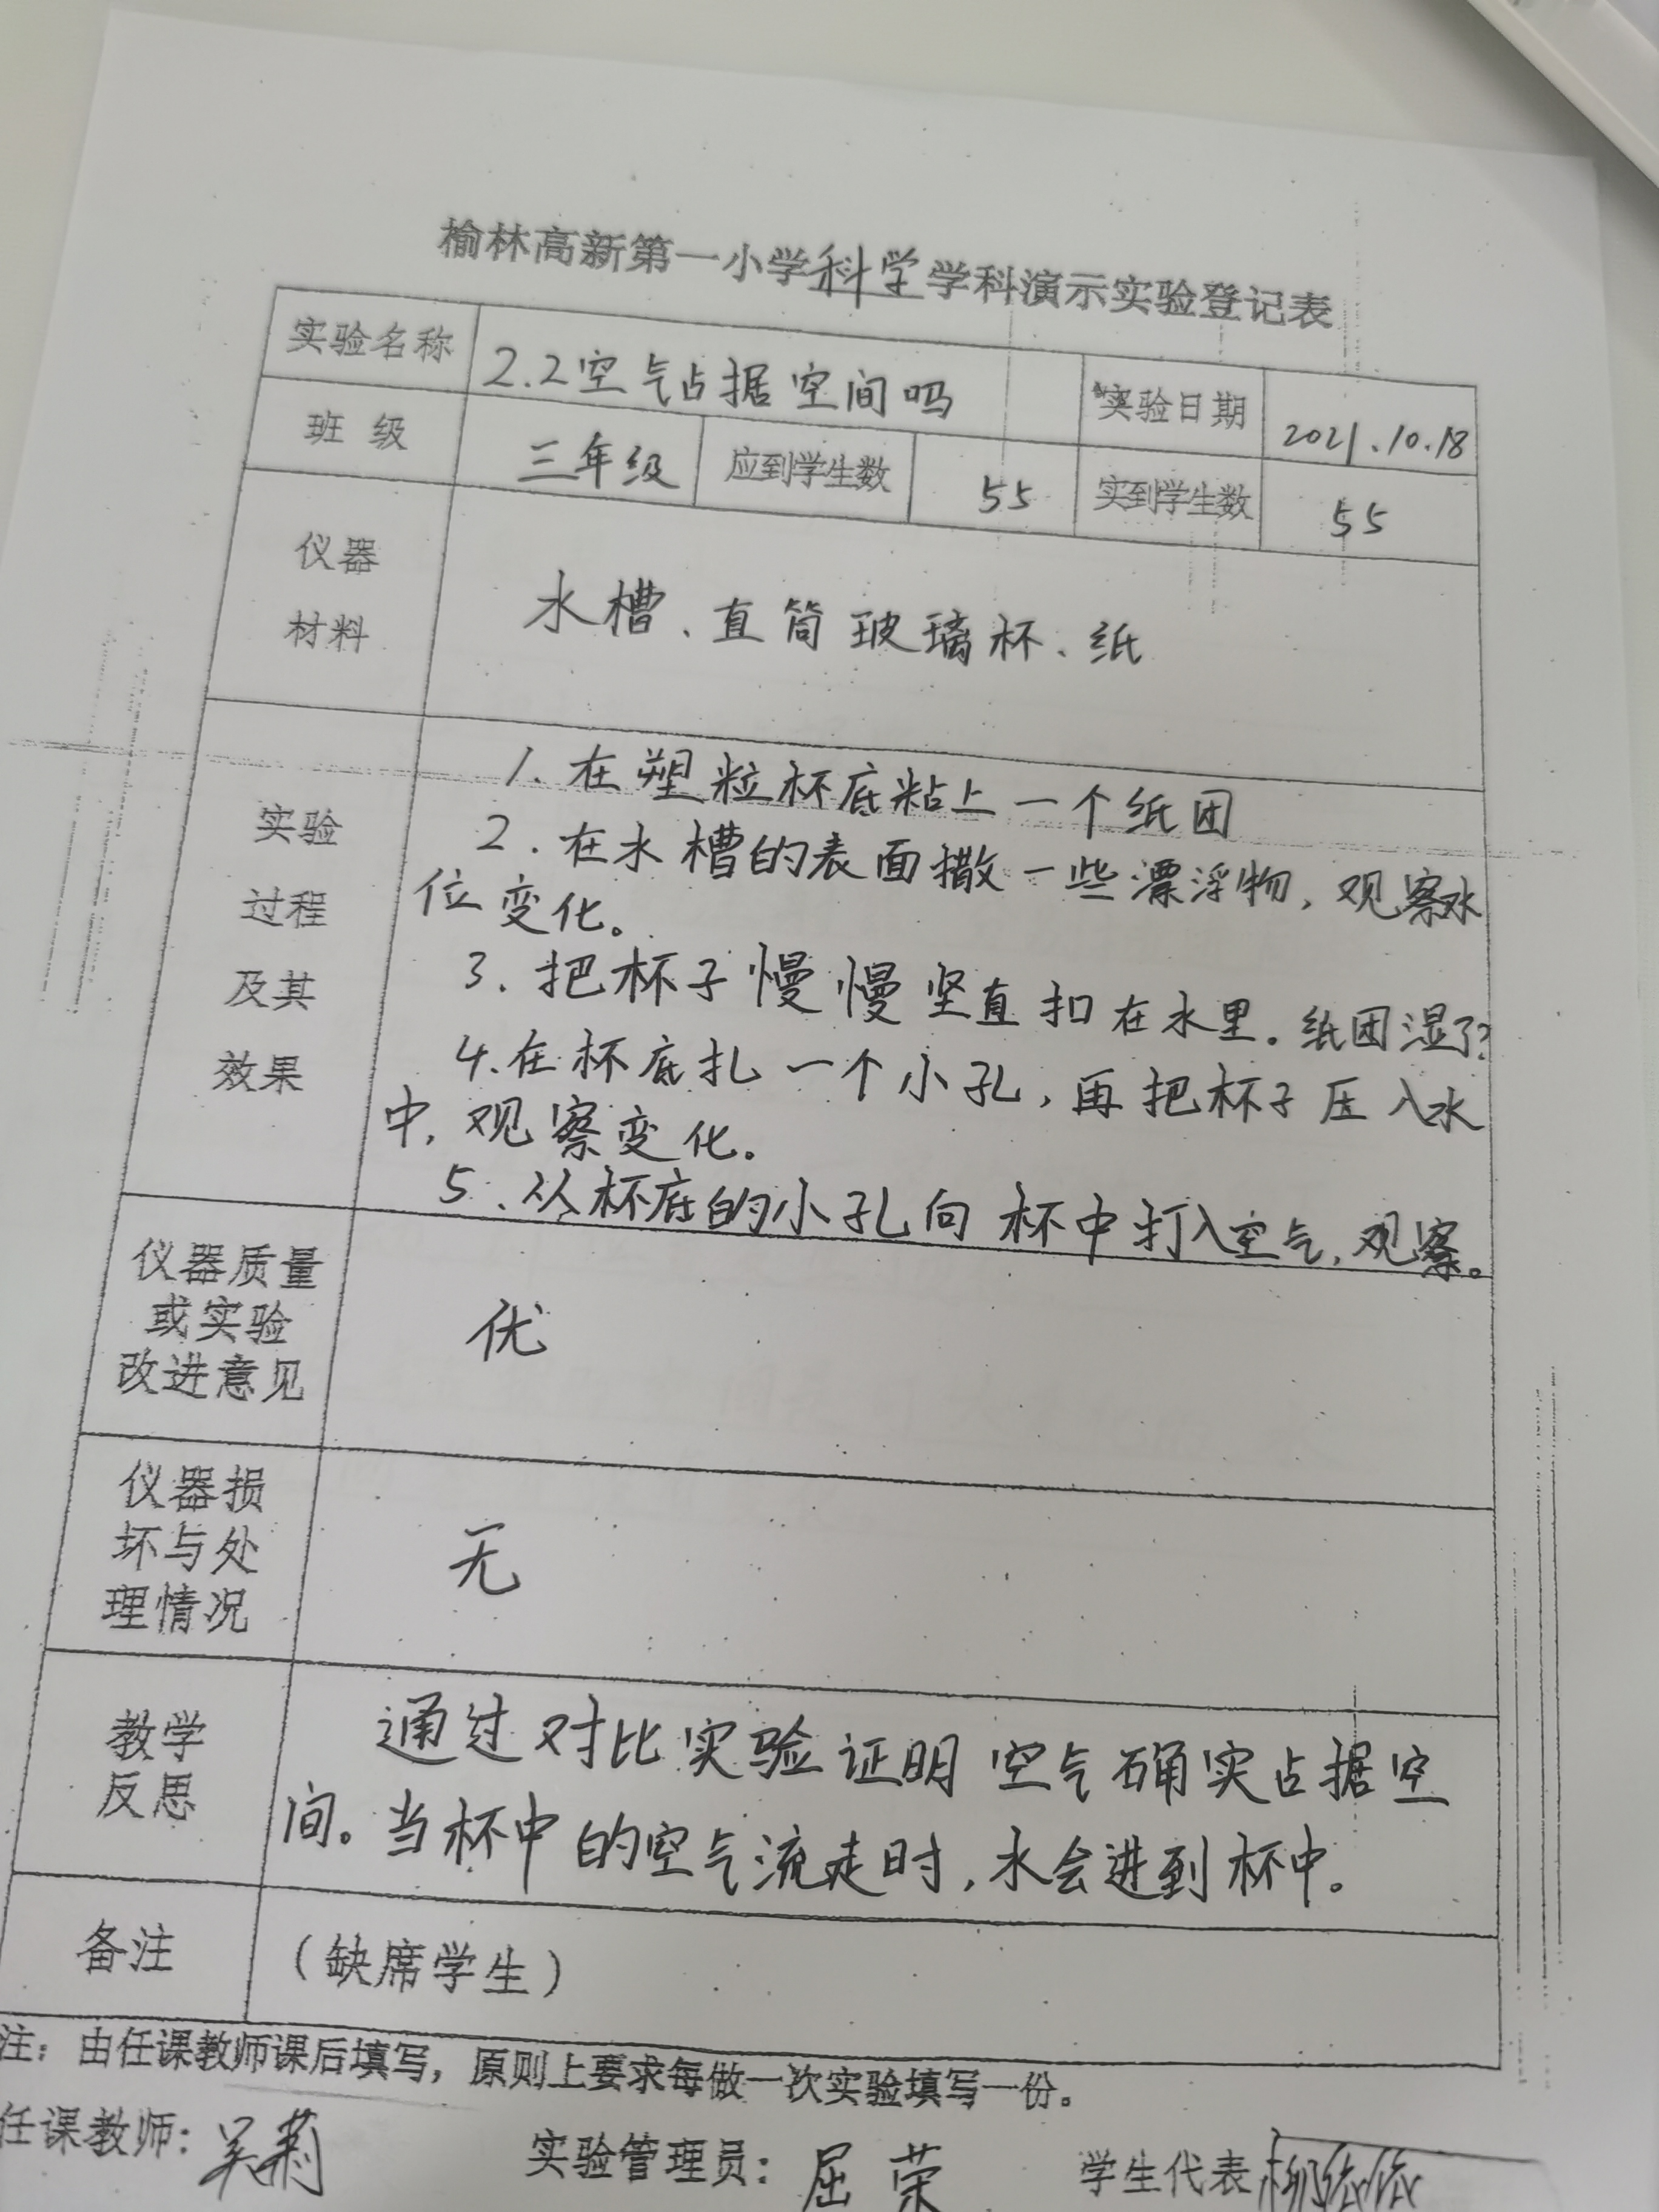 榆林高新第一小学科学学科演示实验登记表
实验名称 2.2空气占据空间吗 实验日期 2021.10.18
班 级 三年级 应到学生数 55 实到学生数 55
仪器
材料
水槽、直筒玻璃杯、纸
实验
过程
及其
效果
1.在塑粒杯底粘上一个纸团
2.在水槽的表面撒一些漂浮物,观察水
位变化。
3.把杯子慢慢坚直扣在水里。纸团湿了?
4.在杯底扎一个小孔,再把杯子压入水
中,观察变化。
5.从杯底的小孔向杯中打入空气,观察。
仪器质量
或实验
改进意见
优
仪器损
坏与处
理情况
无
教学
反思
通过对比实验证明空气确实占据空
间。当杯中的空气流走时,水会进到杯中。
备注 (缺席学生)
注:由任课教师课后填写,原则上要求每做一次实验填写一份。
任课教师:吴莉 实验管理员:屈荣 学生代表柳依依